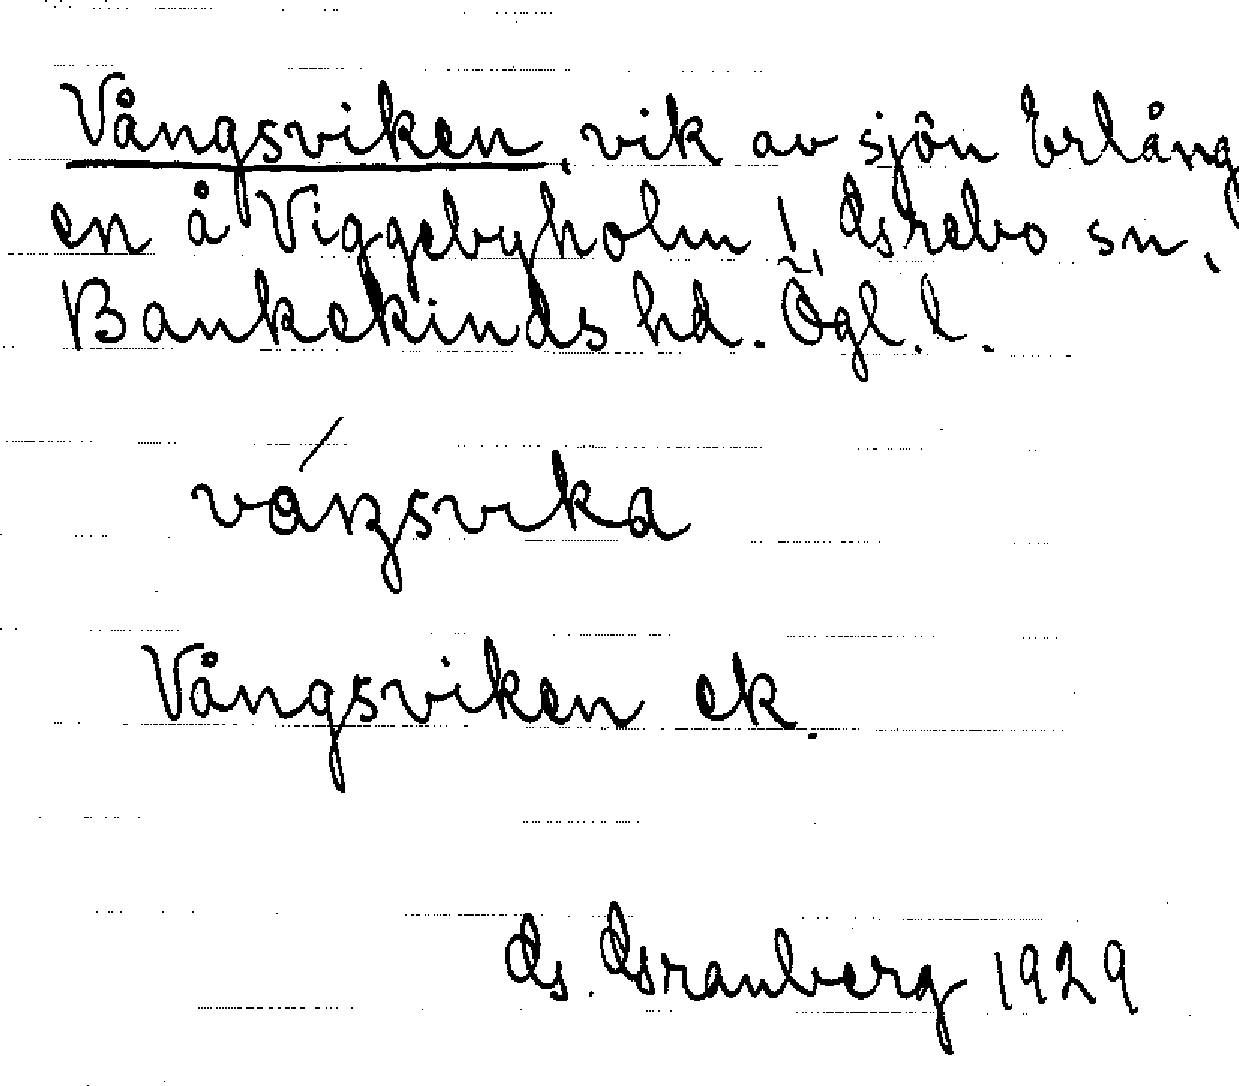 Vångsviken, vik av sjön Erlång
en å Viggebyholm i Grebo sn,
Bankekinds hd. Ögl. l.
våŋsvika
Vångsviken ek.
G. Granberg 1929